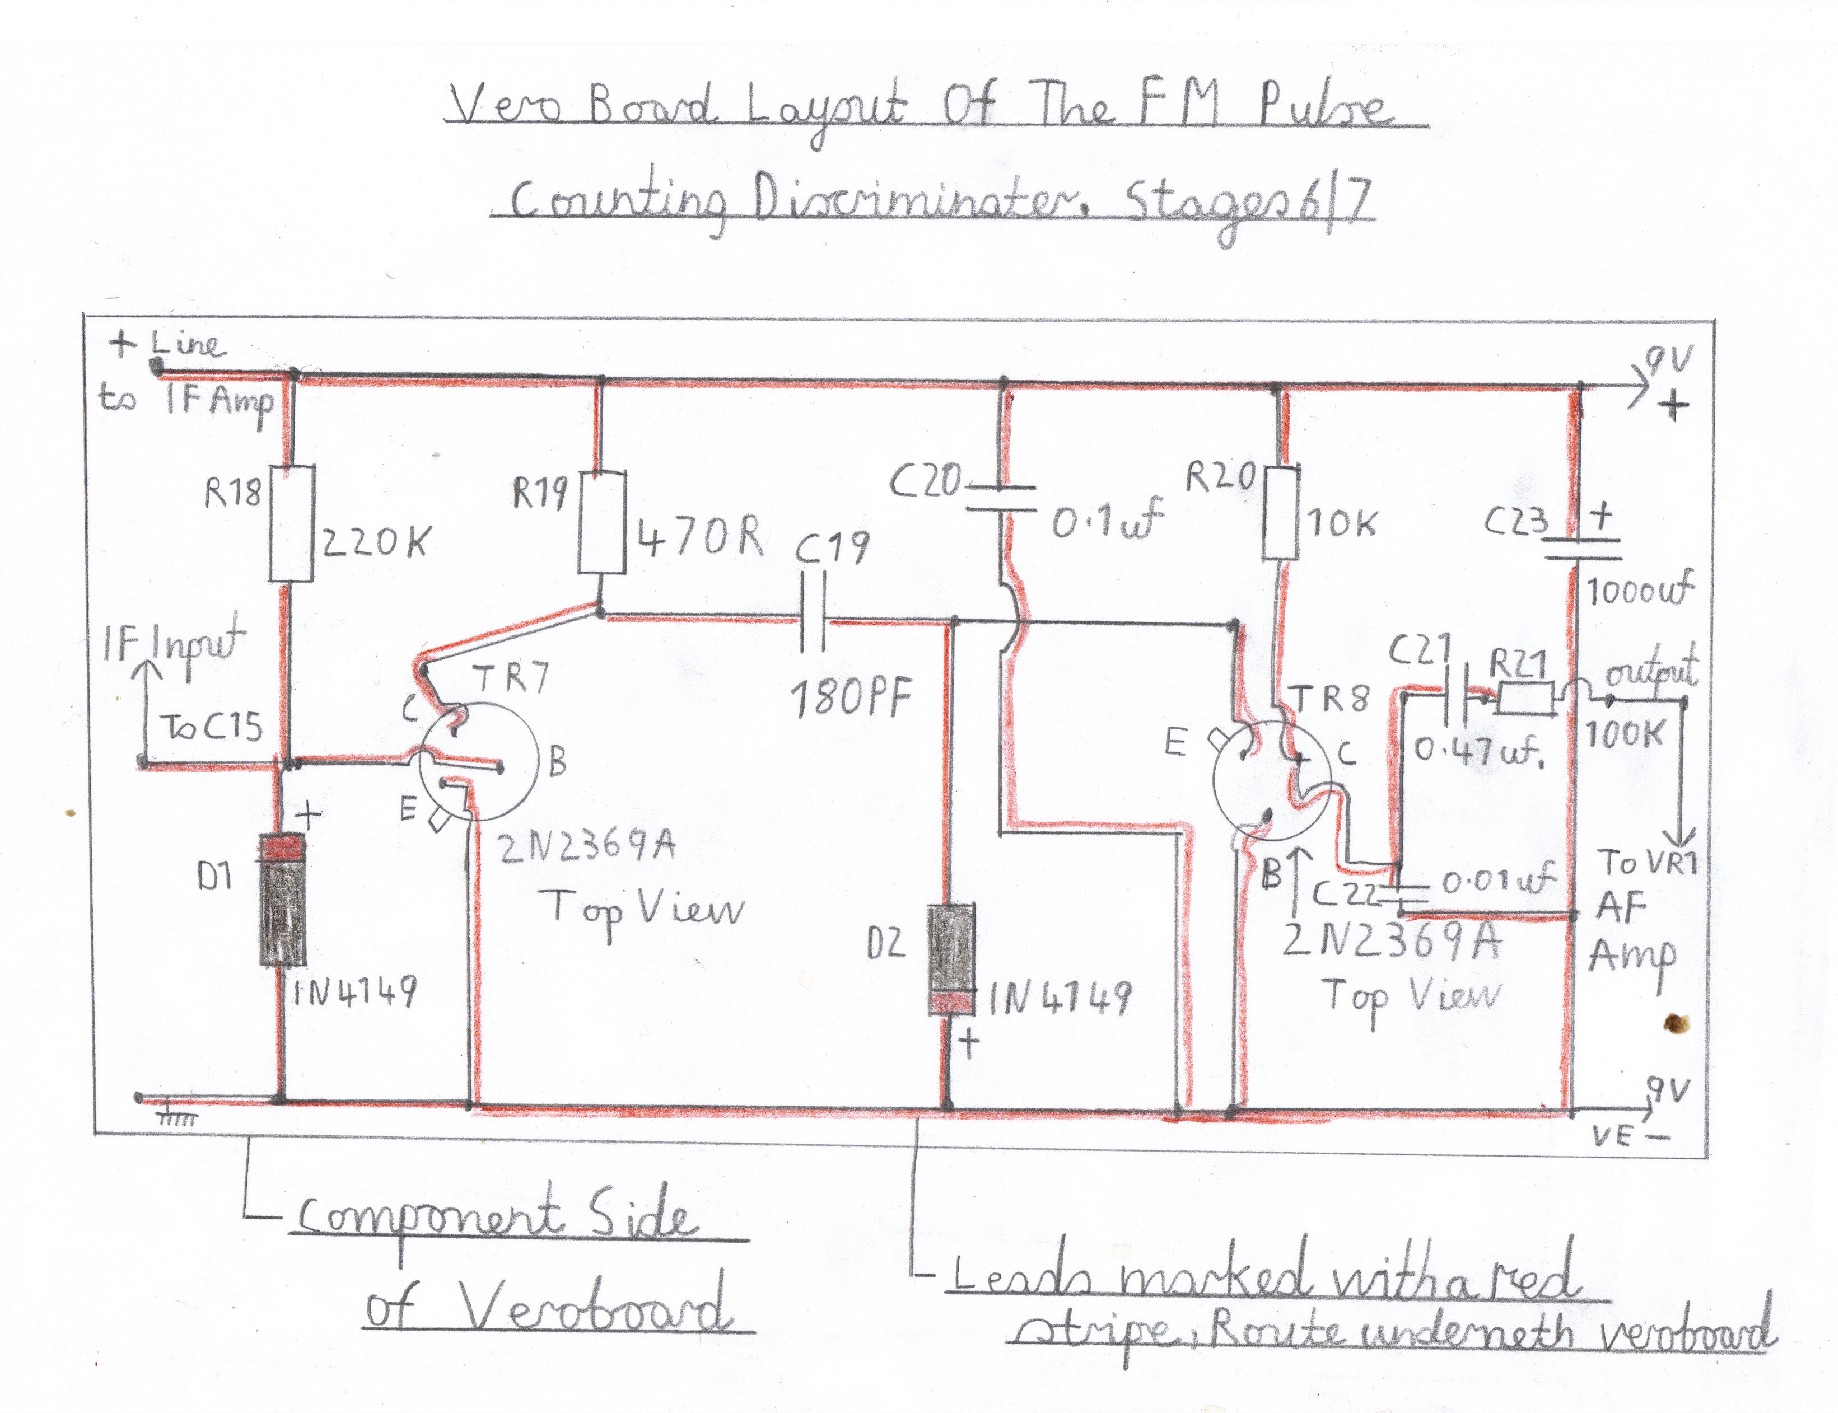 Vero Board Layout Of The FM Pulse
Counting Discriminator. Stages 6/7
+ Line
to IF Amp
9V
+
R18
220K
R19
470R
C19
180PF
C20
0.1uf
R20
10K
C23
+
1000uf
IF Input
To C15
TR7
C
B
E
2N2369A
Top View
TR8
E
C
B
2N2369A
Top View
C21
0.47uf.
R21
100K
output
C22
0.01uf
To VR1
AF
Amp
D1
+
1N4149
D2
1N4149
+
9V
VE -
Component Side
of Veroboard
Leads marked with a red
stripe, Route underneth veroboard